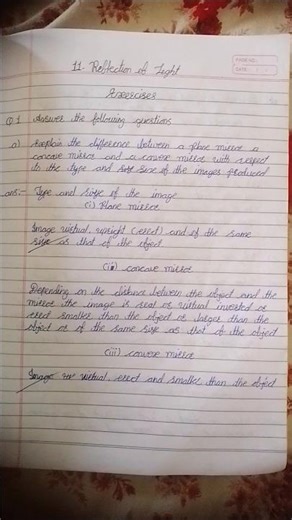 PAGE NO.:
DATE:
11. Reflection of Light
Exercises
Q.1 Answer the following questions
a) Explain the difference between a plane mirror a
concave mirror and a convex mirror with respect
to the type and size of the images produced
ans:- Type and size of the image
(i) Plane mirror
Image virtual, upright (erect) and of the same
size as that of the object
(ii) concave mirror
Depending on the distance between the object and the
mirror the image is real or virtual inverted or
erect smaller than the object or larger than the
object or of the same size as that of the object
(iii) convex mirror
Image virtual, erect and smaller than the object